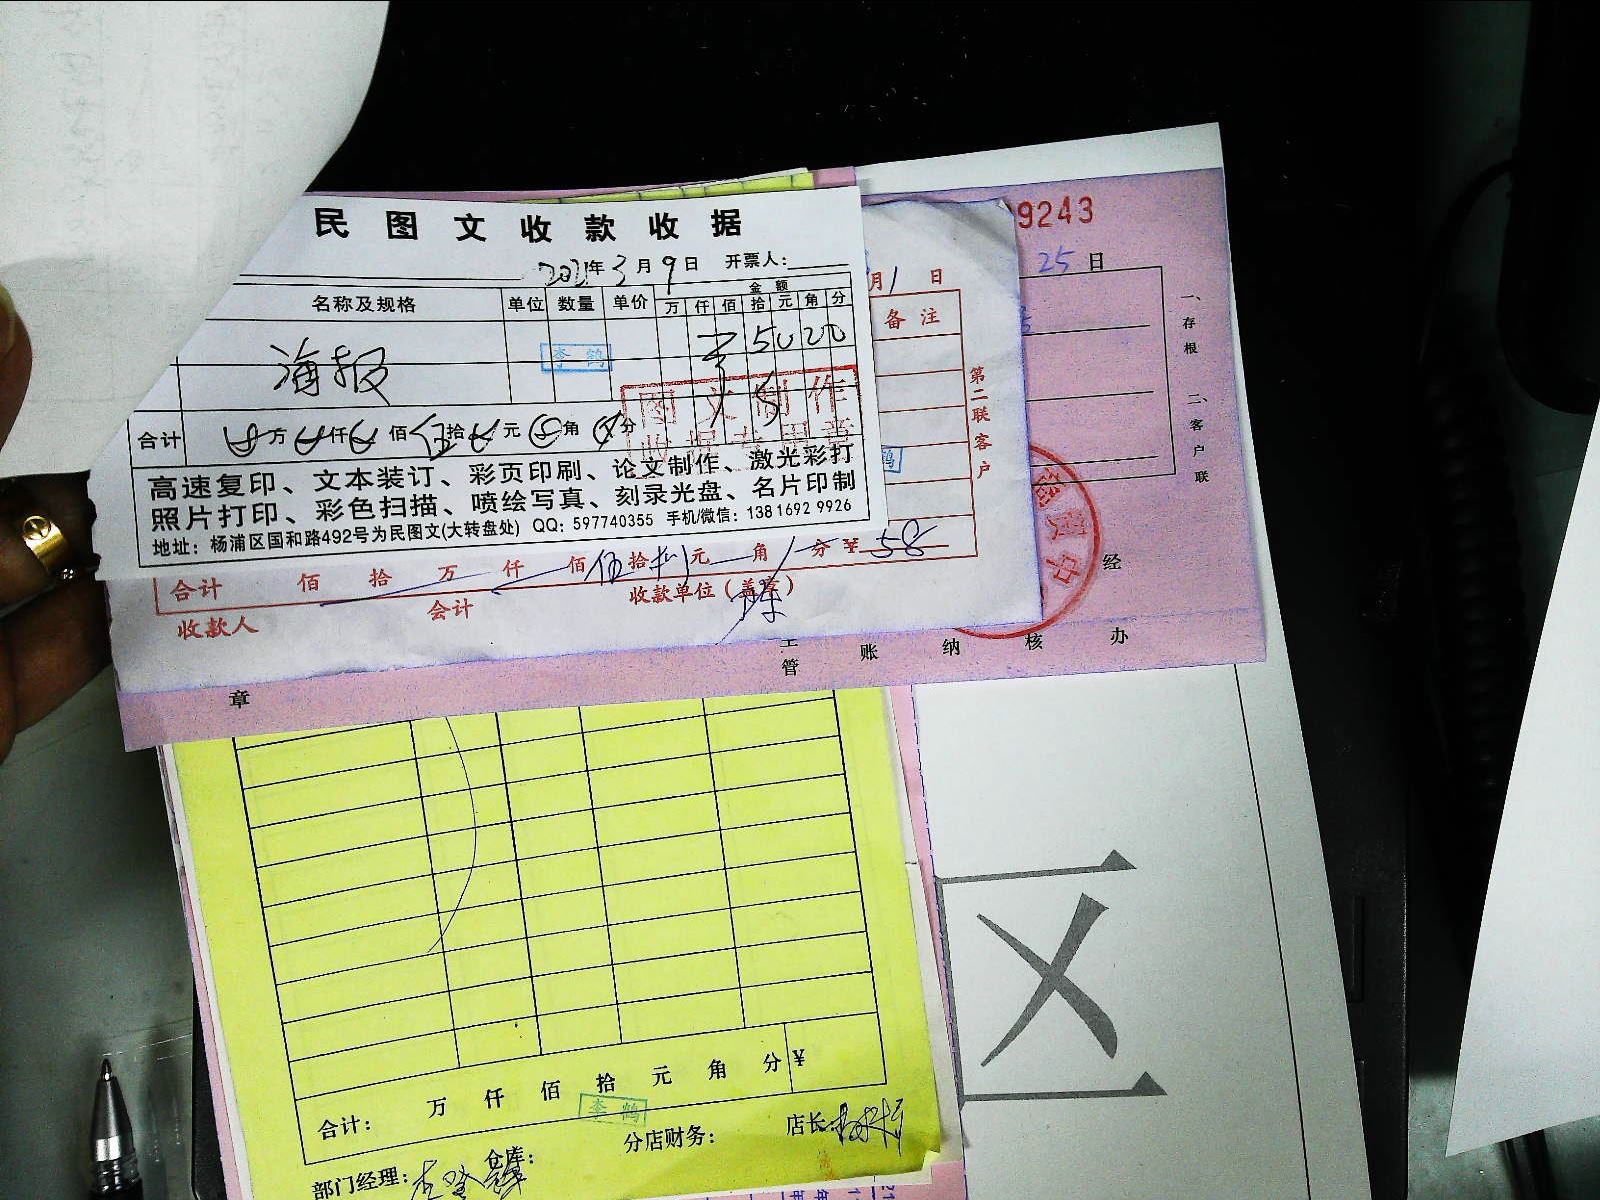 民图文收款收据
2021年3月9日 开票人:
名称及规格 单位 数量 单价 金额
万 仟 佰 拾 元 角 分
海报
李鹤
图文制作
合计 万 仟 佰 伍拾 元 角 分
高速复印、文本装订、彩页印刷、论文制作、激光彩打
照片打印、彩色扫描、喷绘写真、刻录光盘、名片印制
地址：杨浦区国和路492号为民图文(大转盘处) QQ：597740355 手机/微信：13816929926
月1日
备注
第二联客户
鹤
合计 佰 拾 万 仟 佰 伍拾捌元 角 分 ¥58
收款人 会计 收款单位(盖章)
9243
25日
一、存根 二、客户联
章 主管 账 纳 核 经办
合计： 万 仟 佰 拾 元 角 分 ¥
李鹤
部门经理： 仓库： 分店财务： 店长
区